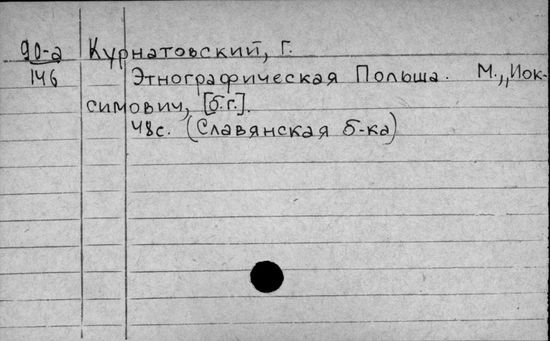 90-а Курнатовский, Г.
146 Этнографическая Польша. М., „Иок-
симович, [б.г.].
48с. (Славянская б-ка)